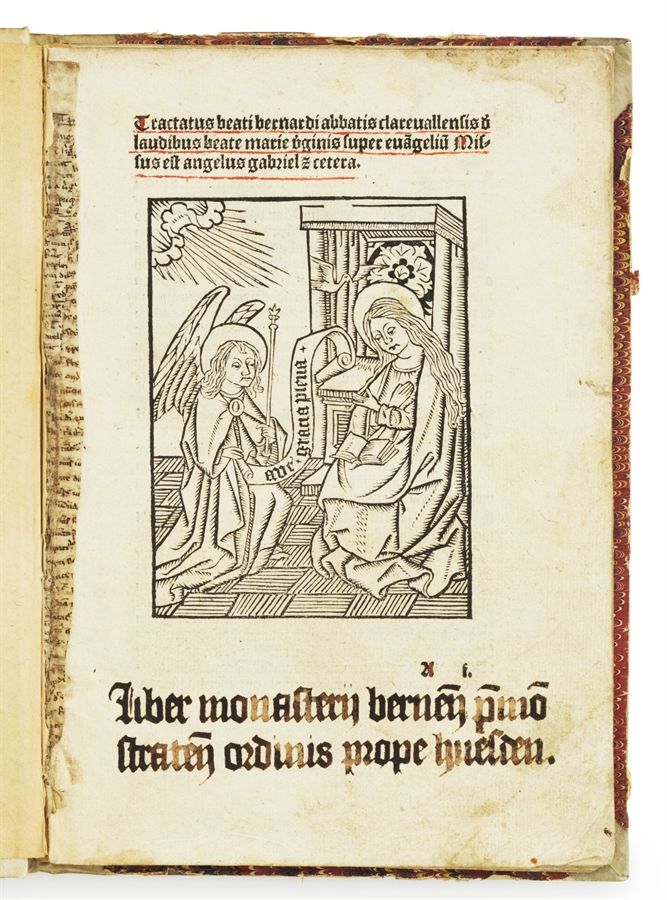 3
Tractatus beati bernardi abbatis clareuallensis v̄
laudibus beate marie v̓ginis super euāgeliū Mis-
sus est angelus gabriel ⁊̄ cetera.
aue · gracia plena ·
A f.
Liber monasterij bernen̄ p̄mō
straten̄ ordinis prope huesden.